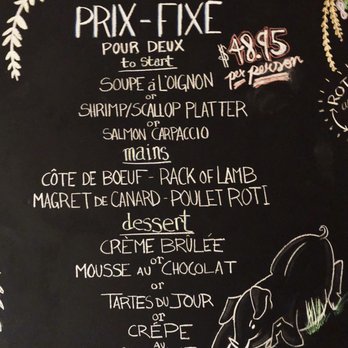 PRIX-FIXE
POUR DEUX
$48.95
per person
to start
SOUPE á L'OIGNON
or
SHRIMP/SCALLOP PLATTER
or
SALMON CARPACCIO
mains
CÔTE DE BOEUF - RACK OF LAMB
MAGRET DE CANARD - POULET ROTI
dessert
CRÈME BRÛLÉE
or
MOUSSE AU CHOCOLAT
or
TARTES DU JOUR
or
CRÊPE
AU
ROT